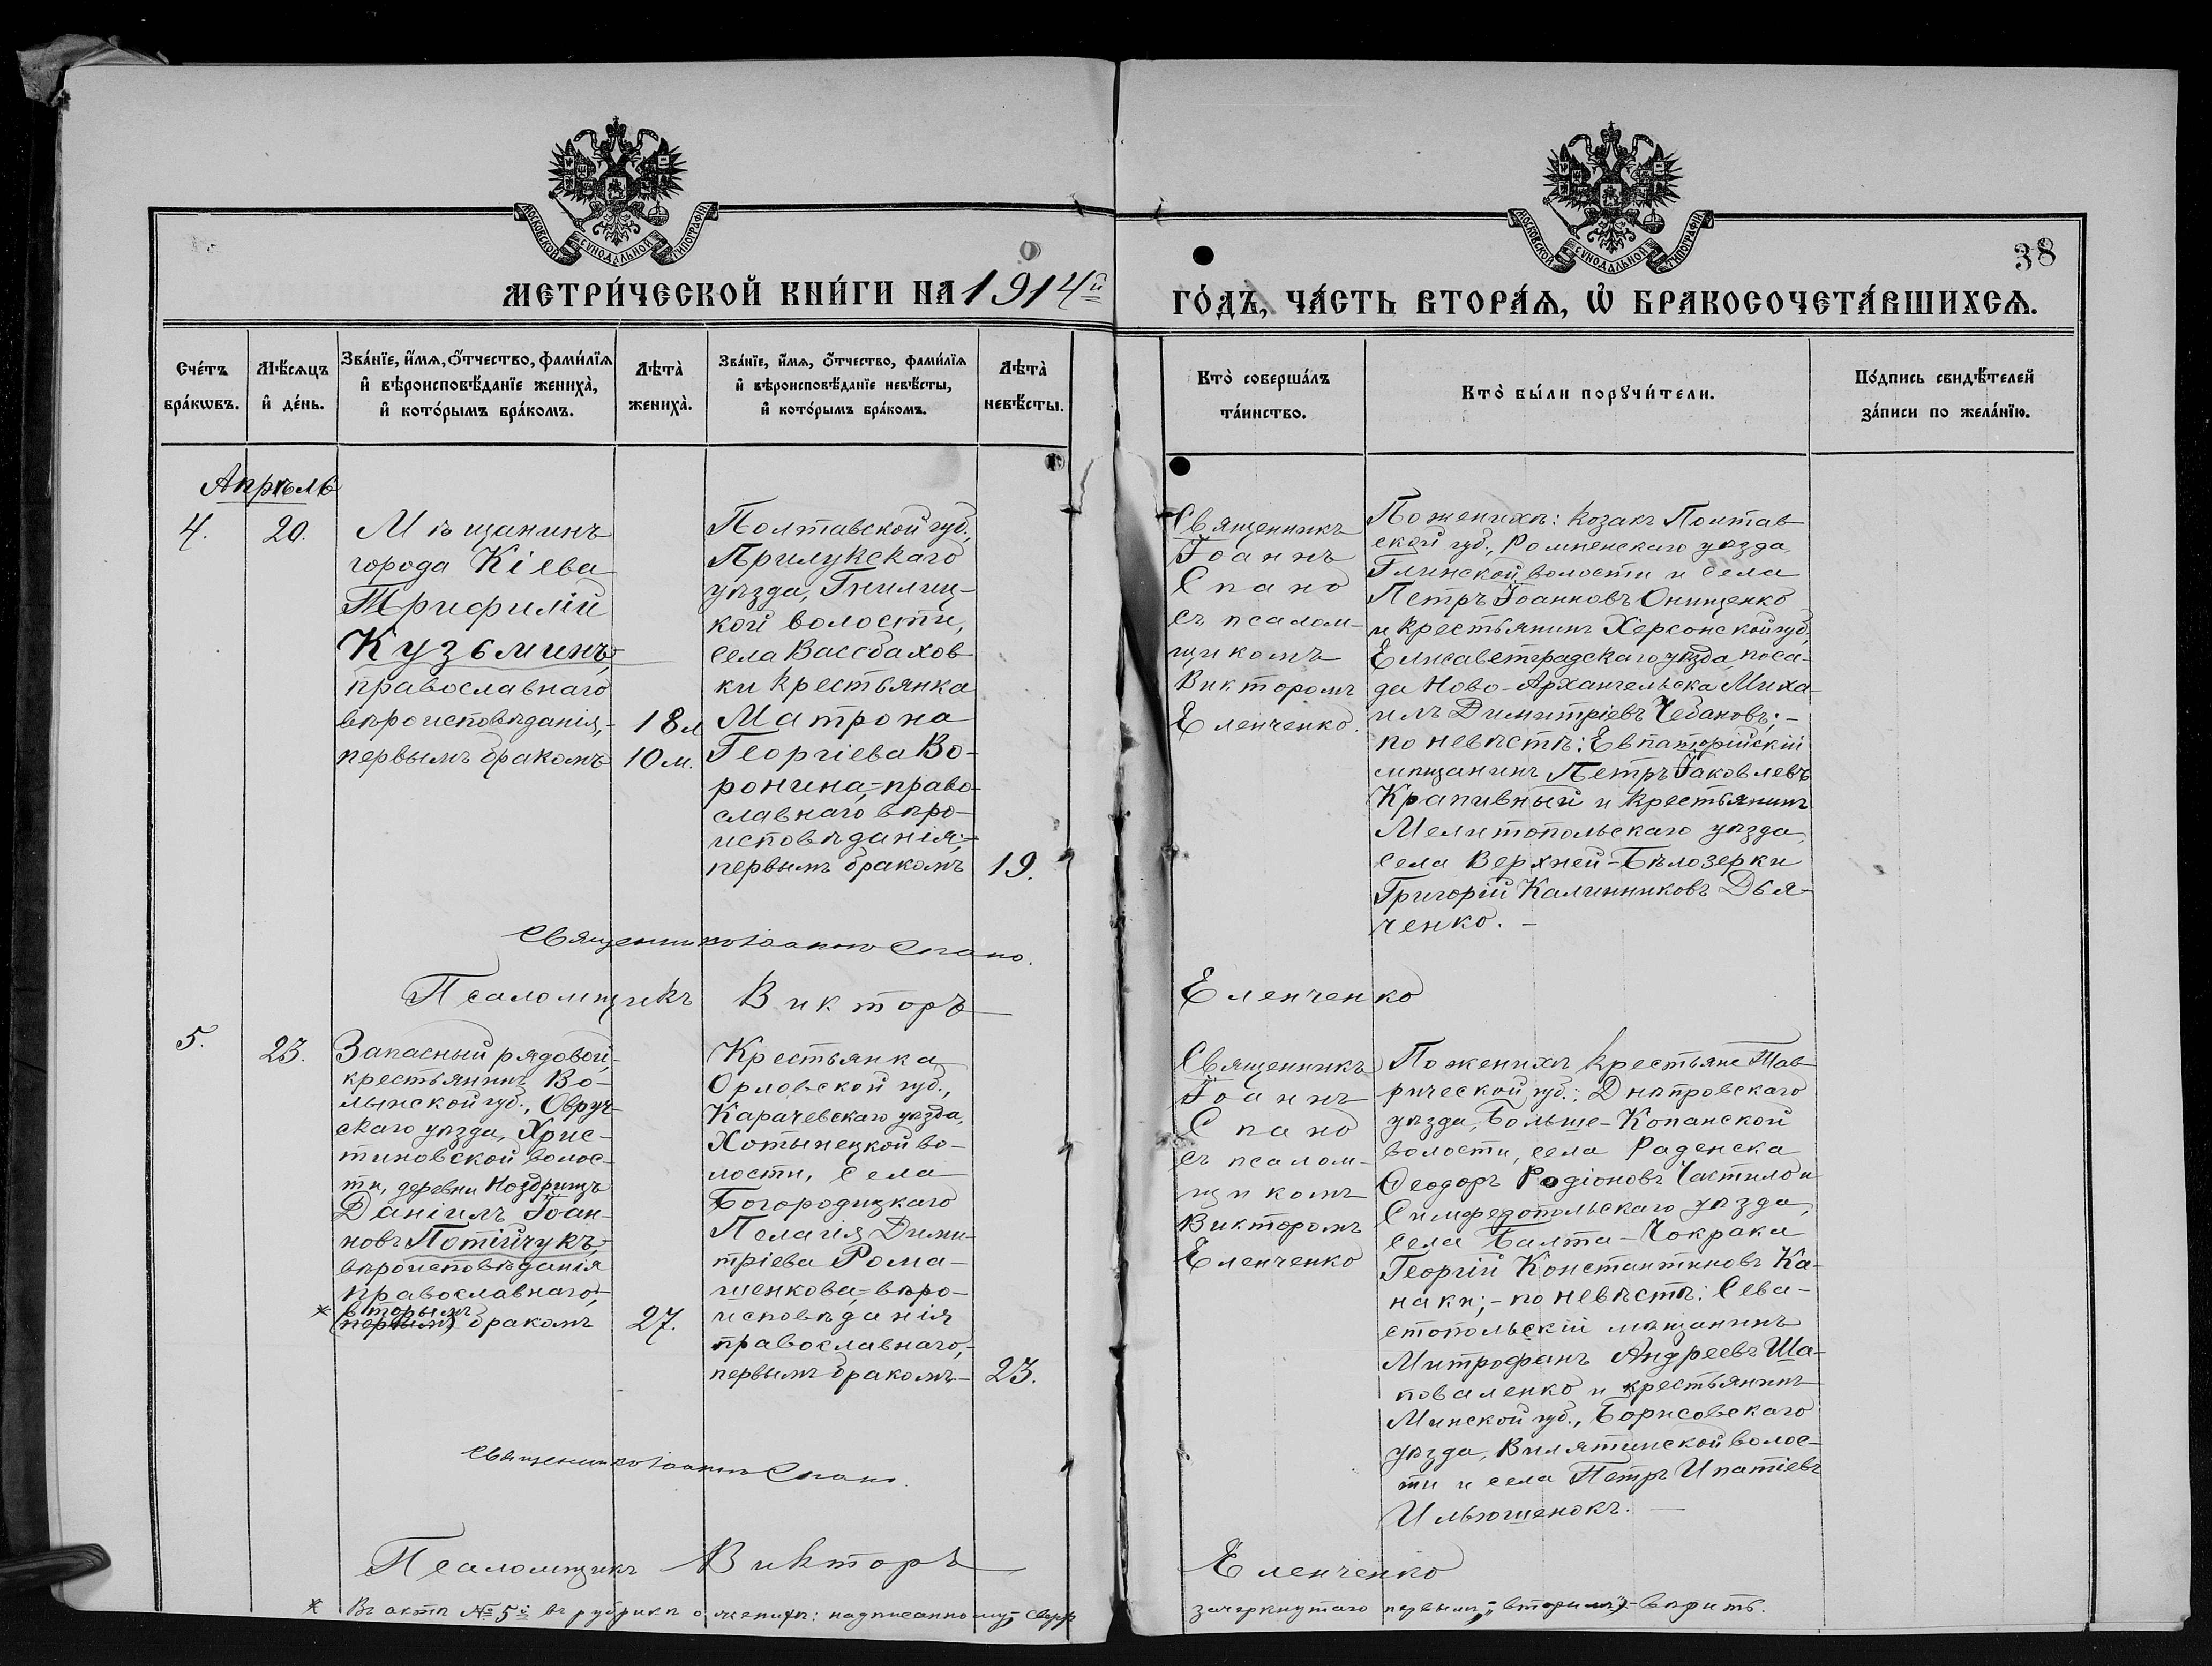 МОСКОВСКОЙ СѴНОДАЛЬНОЙ ТИПОГРАФІИ
МОСКОВСКОЙ СѴНОДАЛЬНОЙ ТИПОГРАФІИ
38
МЕТРИ́ЧЕСКОЙ КНИ́ГИ НА 1914й
ГО́ДЪ, ЧА́СТЬ ВТОРА́Ѧ, Ѽ БРАКОСОЧЕТА́ВШИХСѦ.
Сче́тъ
бра́кѡвъ.
Мѣ́сяцъ
и҆ де́нь.
Зва́нїе, и҆́мѧ, ѻ҆́тчество, фами́лїѧ
и҆ вѣроисповѣ́данїе жениха̀,
и҆ кото́рымъ бра́комъ.
Лѣта̀
жениха̀.
Зва́нїе, и҆́мѧ, ѻ҆́тчество, фами́лїѧ
и҆ вѣроисповѣ́данїе невѣ́сты,
и҆ кото́рымъ бра́комъ.
Лѣта̀
невѣ́сты.
Кто̀ соверша́лъ
та́инство.
Кто̀ бы́ли порꙋчи́тели.
По́дпись свидѣ́телей
за́писи по жела́нїю.
Апрѣль
4.
20.
Мѣщанинъ
города Кіева
Трифилій
Кузьминъ,
православнаго
вѣроисповѣданія,-
первымъ бракомъ
18 л
10 м.
Полтавской губ.,
Прилукскаго
уѣзда, Гнилиц-
кой волости,
села Вассбахов-
ки крестьянка
Матрона
Георгіева Во-
ронина,-право-
славнаго вѣро-
исповѣданія,-
первымъ бракомъ
19.
Священникъ
Іоаннъ
Спано
съ псалом-
щикомъ
Викторомъ
Еленченко.
По женихѣ: козакъ Полтав-
ской губ., Ромненскаго уѣзда,
Глинской волости и села
Петръ Іоанновъ Онищенко
и крестьянинъ Херсонской губ.
Елисаветградскаго уѣзда, поса-
да Ново-Архангельска Миха-
илъ Димитріевъ Чебановъ;-
по невѣстѣ: Евпаторійскій
мѣщанинъ Петръ Іаковлевъ
Крапивный и крестьянинъ
Мелитопольскаго уѣзда,
села Верхней-Бѣлозерки
Григорій Калинниковъ Дья-
ченко. -
Священникъ Іоаннъ Спано.
Псаломщикъ Викторъ Еленченко
5.
23.
Запасный рядовой,
крестьянинъ Во-
лынской губ., Овруч-
скаго уѣзда, Хрис-
тиновской волос-
ти, деревни Ноздрищъ
Даніилъ Іоан-
новъ Потійчукъ,
вѣроисповѣданія
православнаго,-
* вторымъ
(первымъ) бракомъ
27.
Крестьянка
Орловской губ.,
Карачевскаго уѣзда,
Хотынецкой во-
лости, села
Богородицкаго
Пелагія Дими-
тріева Рома-
шенкова,-вѣро-
исповѣданія
православнаго,-
первымъ бракомъ-
23.
Священникъ
Іоаннъ
Спано
съ псалом-
щикомъ
Викторомъ
Еленченко
По женихѣ крестьяне Тав-
рической губ.: Днѣпровскаго
уѣзда, Больше-Копанской
волости, села Раденска
Ѳеодоръ Родіоновъ Частило и
Симферопольскаго уѣзда,
села Балта-Чокрака
Георгій Константиновъ Ка-
наки;-по невѣстѣ: Сева-
стопольскій мѣщанинъ
Митрофанъ Андреевъ Ша-
поваленко и крестьянинъ
Минской губ., Борисовскаго
уѣзда, Вилятинской волос-
ти и села Петръ Ипатіевъ
Ильюшенокъ. -
Священникъ Іоаннъ Спано.
Псаломщикъ Викторъ Еленченко
* Въ актѣ № 5й въ рубрикѣ о женихѣ: надписанному, сверх зачеркнутаго первымъ, "вторымъ"-вѣрить.